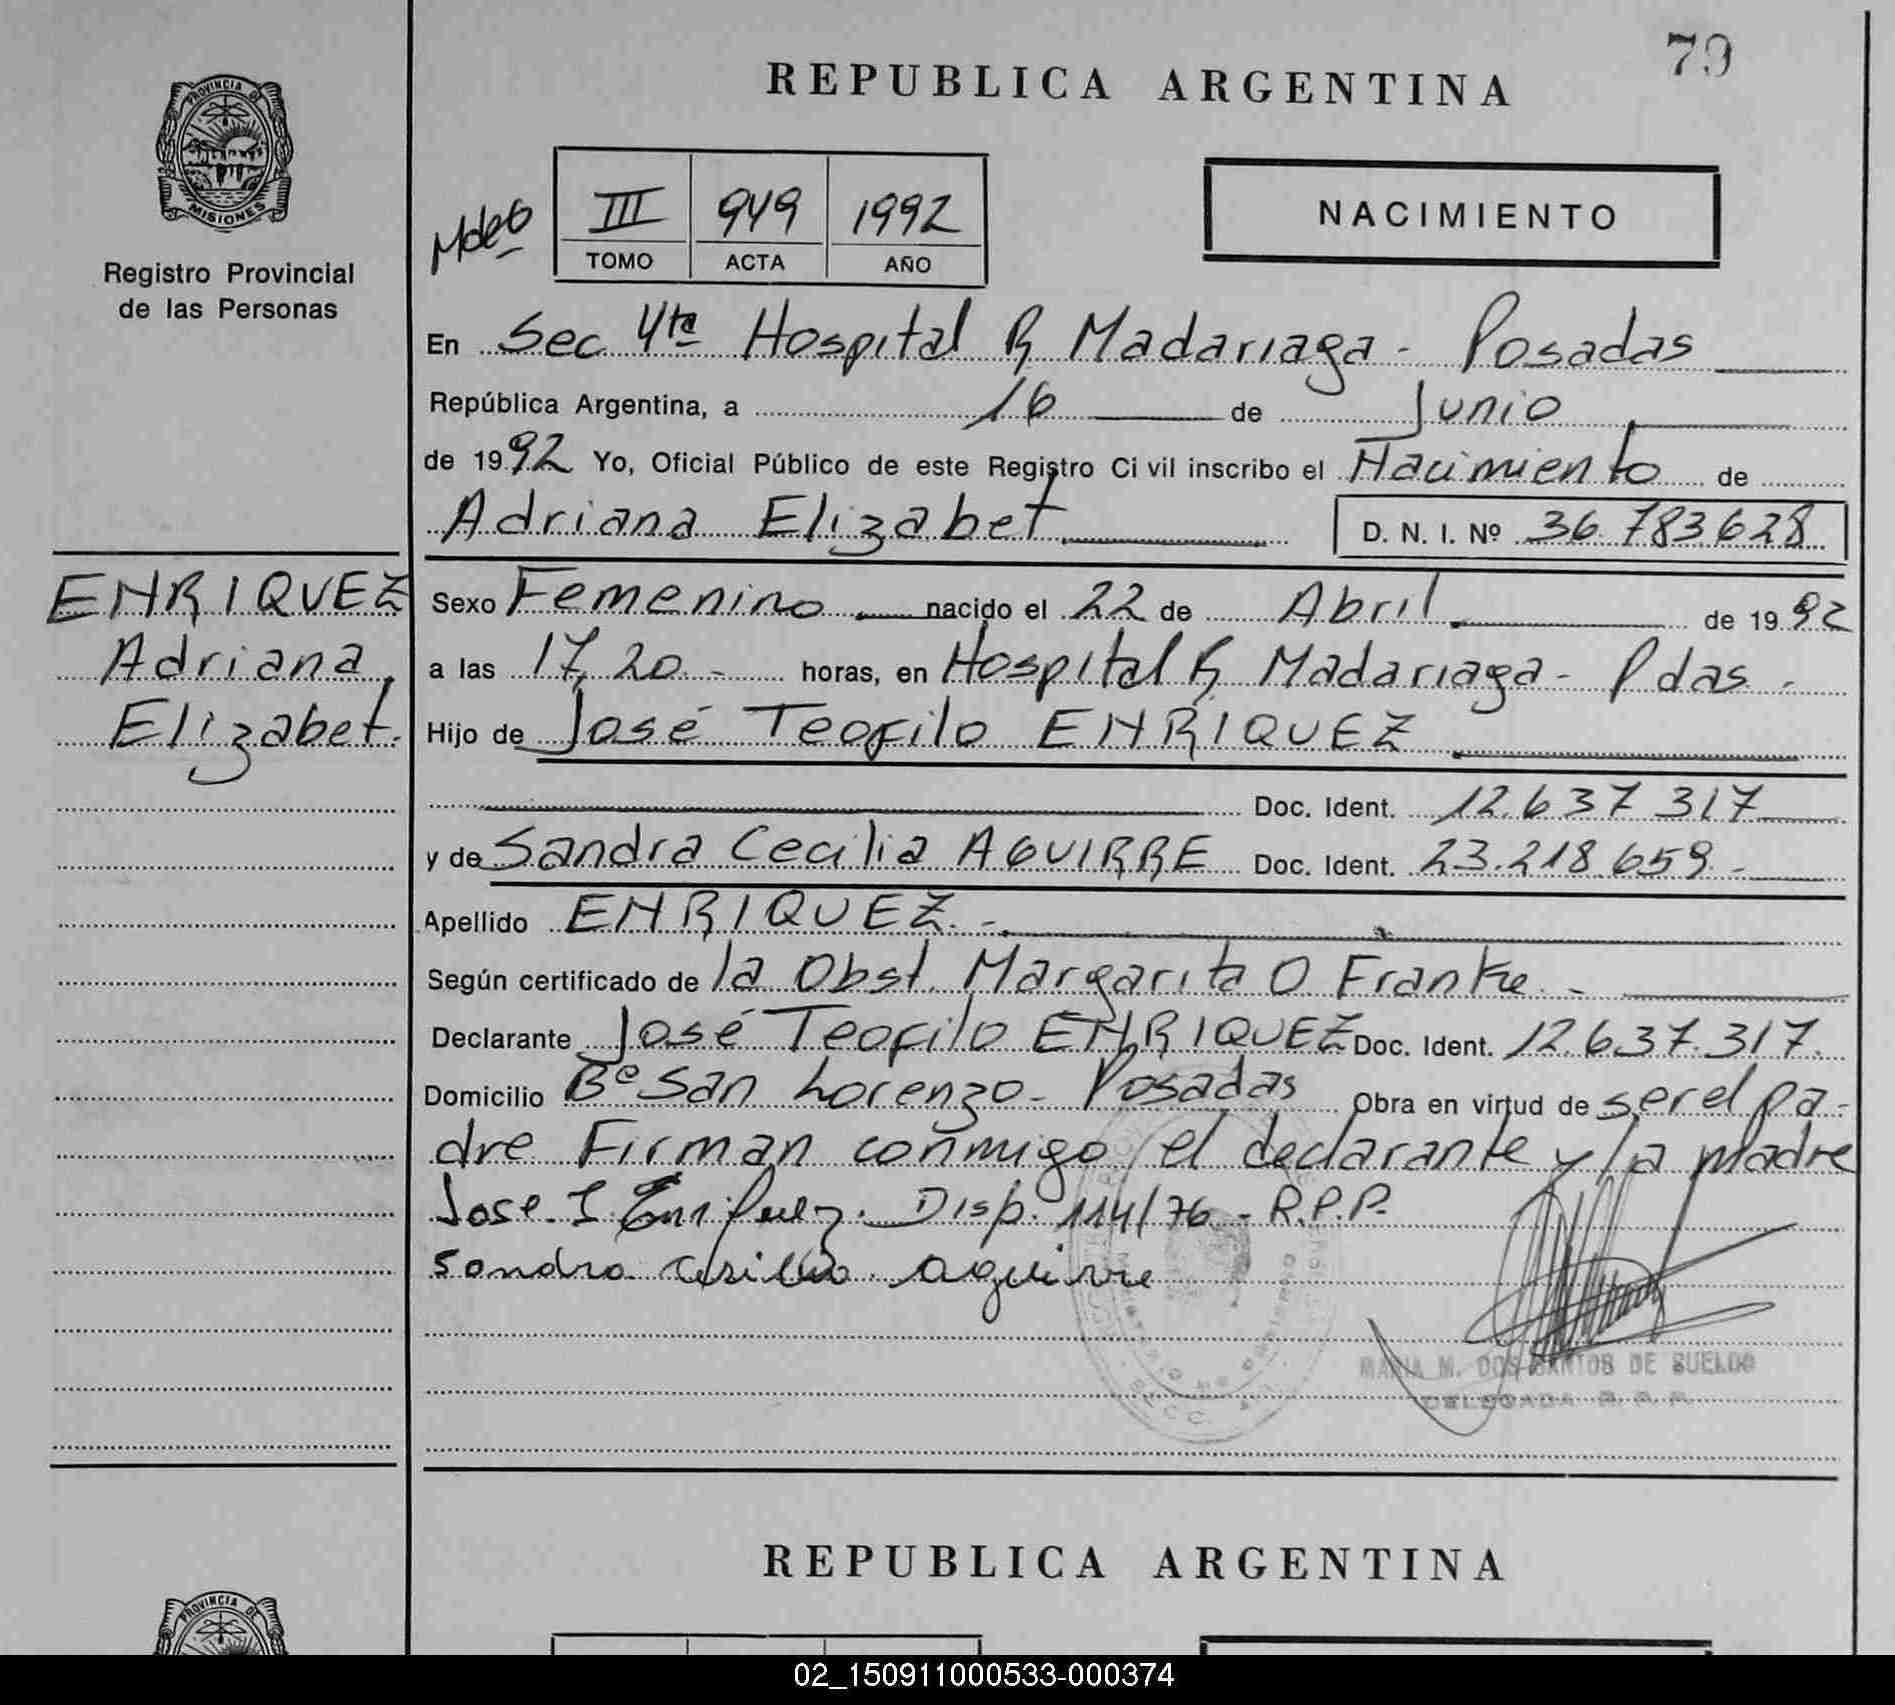 79
REPUBLICA ARGENTINA
PROVINCIA DE
MISIONES
Registro Provincial
de las Personas
III 949 1992
TOMO ACTA AÑO
NACIMIENTO
En Sec 4ta Hospital R Madariaga - Posadas
República Argentina, a 16 de Junio
de 1992 Yo, Oficial Público de este Registro Civil inscribo el Nacimiento de
Adriana Elizabet D. N. I. Nº 36.783.628
ENRIQUEZ
Adriana
Elizabet.
Sexo Femenino nacido el 22 de Abril de 1992
a las 17,20.- horas, en Hospital R Madariaga - Pdas -
Hijo de José Teofilo ENRIQUEZ
Doc. Ident. 12.637.317
y de Sandra Cecilia AGUIRRE Doc. Ident. 23.218.659.-
Apellido ENRIQUEZ.-
Según certificado de la Obst. Margarita O Franke -
Declarante José Teofilo ENRIQUEZ Doc. Ident. 12.637.317.
Domicilio Bº San Lorenzo - Posadas Obra en virtud de ser el pa-
dre Firman conmigo el declarante y la madre
Jose T Enriquez. Disp. 114/76 - R.P.P.
Sandra Cesilia aguirre
MARIA M. DOS SANTOS DE SUELDO
DELEGADA R. P. P.
REPUBLICA ARGENTINA
PROVINCIA DE
02_150911000533-000374